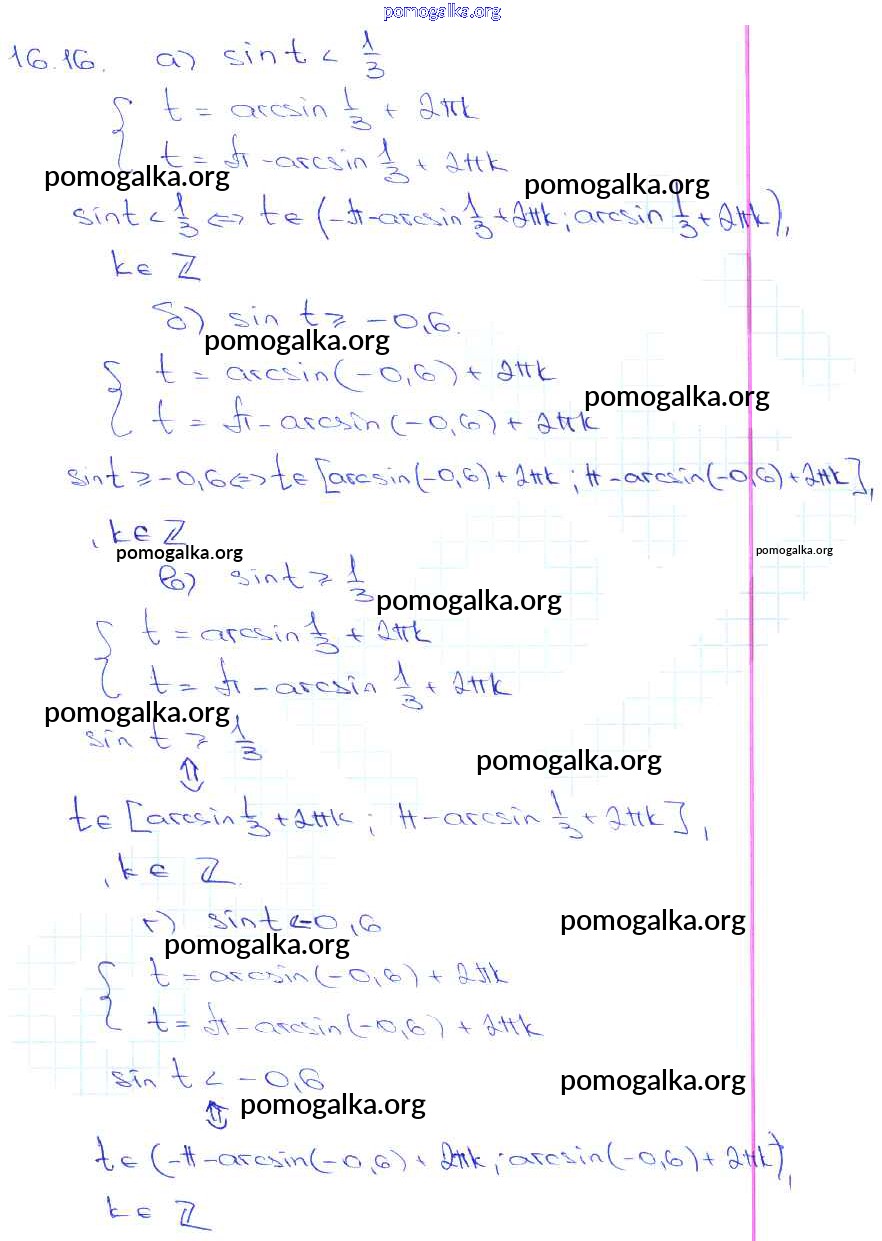 pomogalka.org
16.16. а) sin t < 1/3
{ t = arcsin 1/3 + 2πk
t = π - arcsin 1/3 + 2πk
pomogalka.org pomogalka.org
sin t < 1/3 <=> t ∈ (-π - arcsin 1/3 + 2πk ; arcsin 1/3 + 2πk),
k ∈ ℤ
б) sin t ⩾ -0,6.
pomogalka.org
{ t = arcsin(-0,6) + 2πk
pomogalka.org
t = π - arcsin(-0,6) + 2πk
sin t ⩾ -0,6 <=> t ∈ [arcsin(-0,6) + 2πk ; π - arcsin(-0,6) + 2πk],
, k ∈ ℤ
pomogalka.org pomogalka.org
в) sin t ⩾ 1/3
pomogalka.org
{ t = arcsin 1/3 + 2πk
t = π - arcsin 1/3 + 2πk
pomogalka.org
sin t ⩾ 1/3
pomogalka.org
⇕
t ∈ [arcsin 1/3 + 2πk ; π - arcsin 1/3 + 2πk],
, k ∈ ℤ.
г) sin t < -0,6
pomogalka.org
pomogalka.org
{ t = arcsin(-0,6) + 2πk
t = π - arcsin(-0,6) + 2πk
sin t < -0,6
pomogalka.org
⇕ pomogalka.org
t ∈ (-π - arcsin(-0,6) + 2πk ; arcsin(-0,6) + 2πk),
k ∈ ℤ